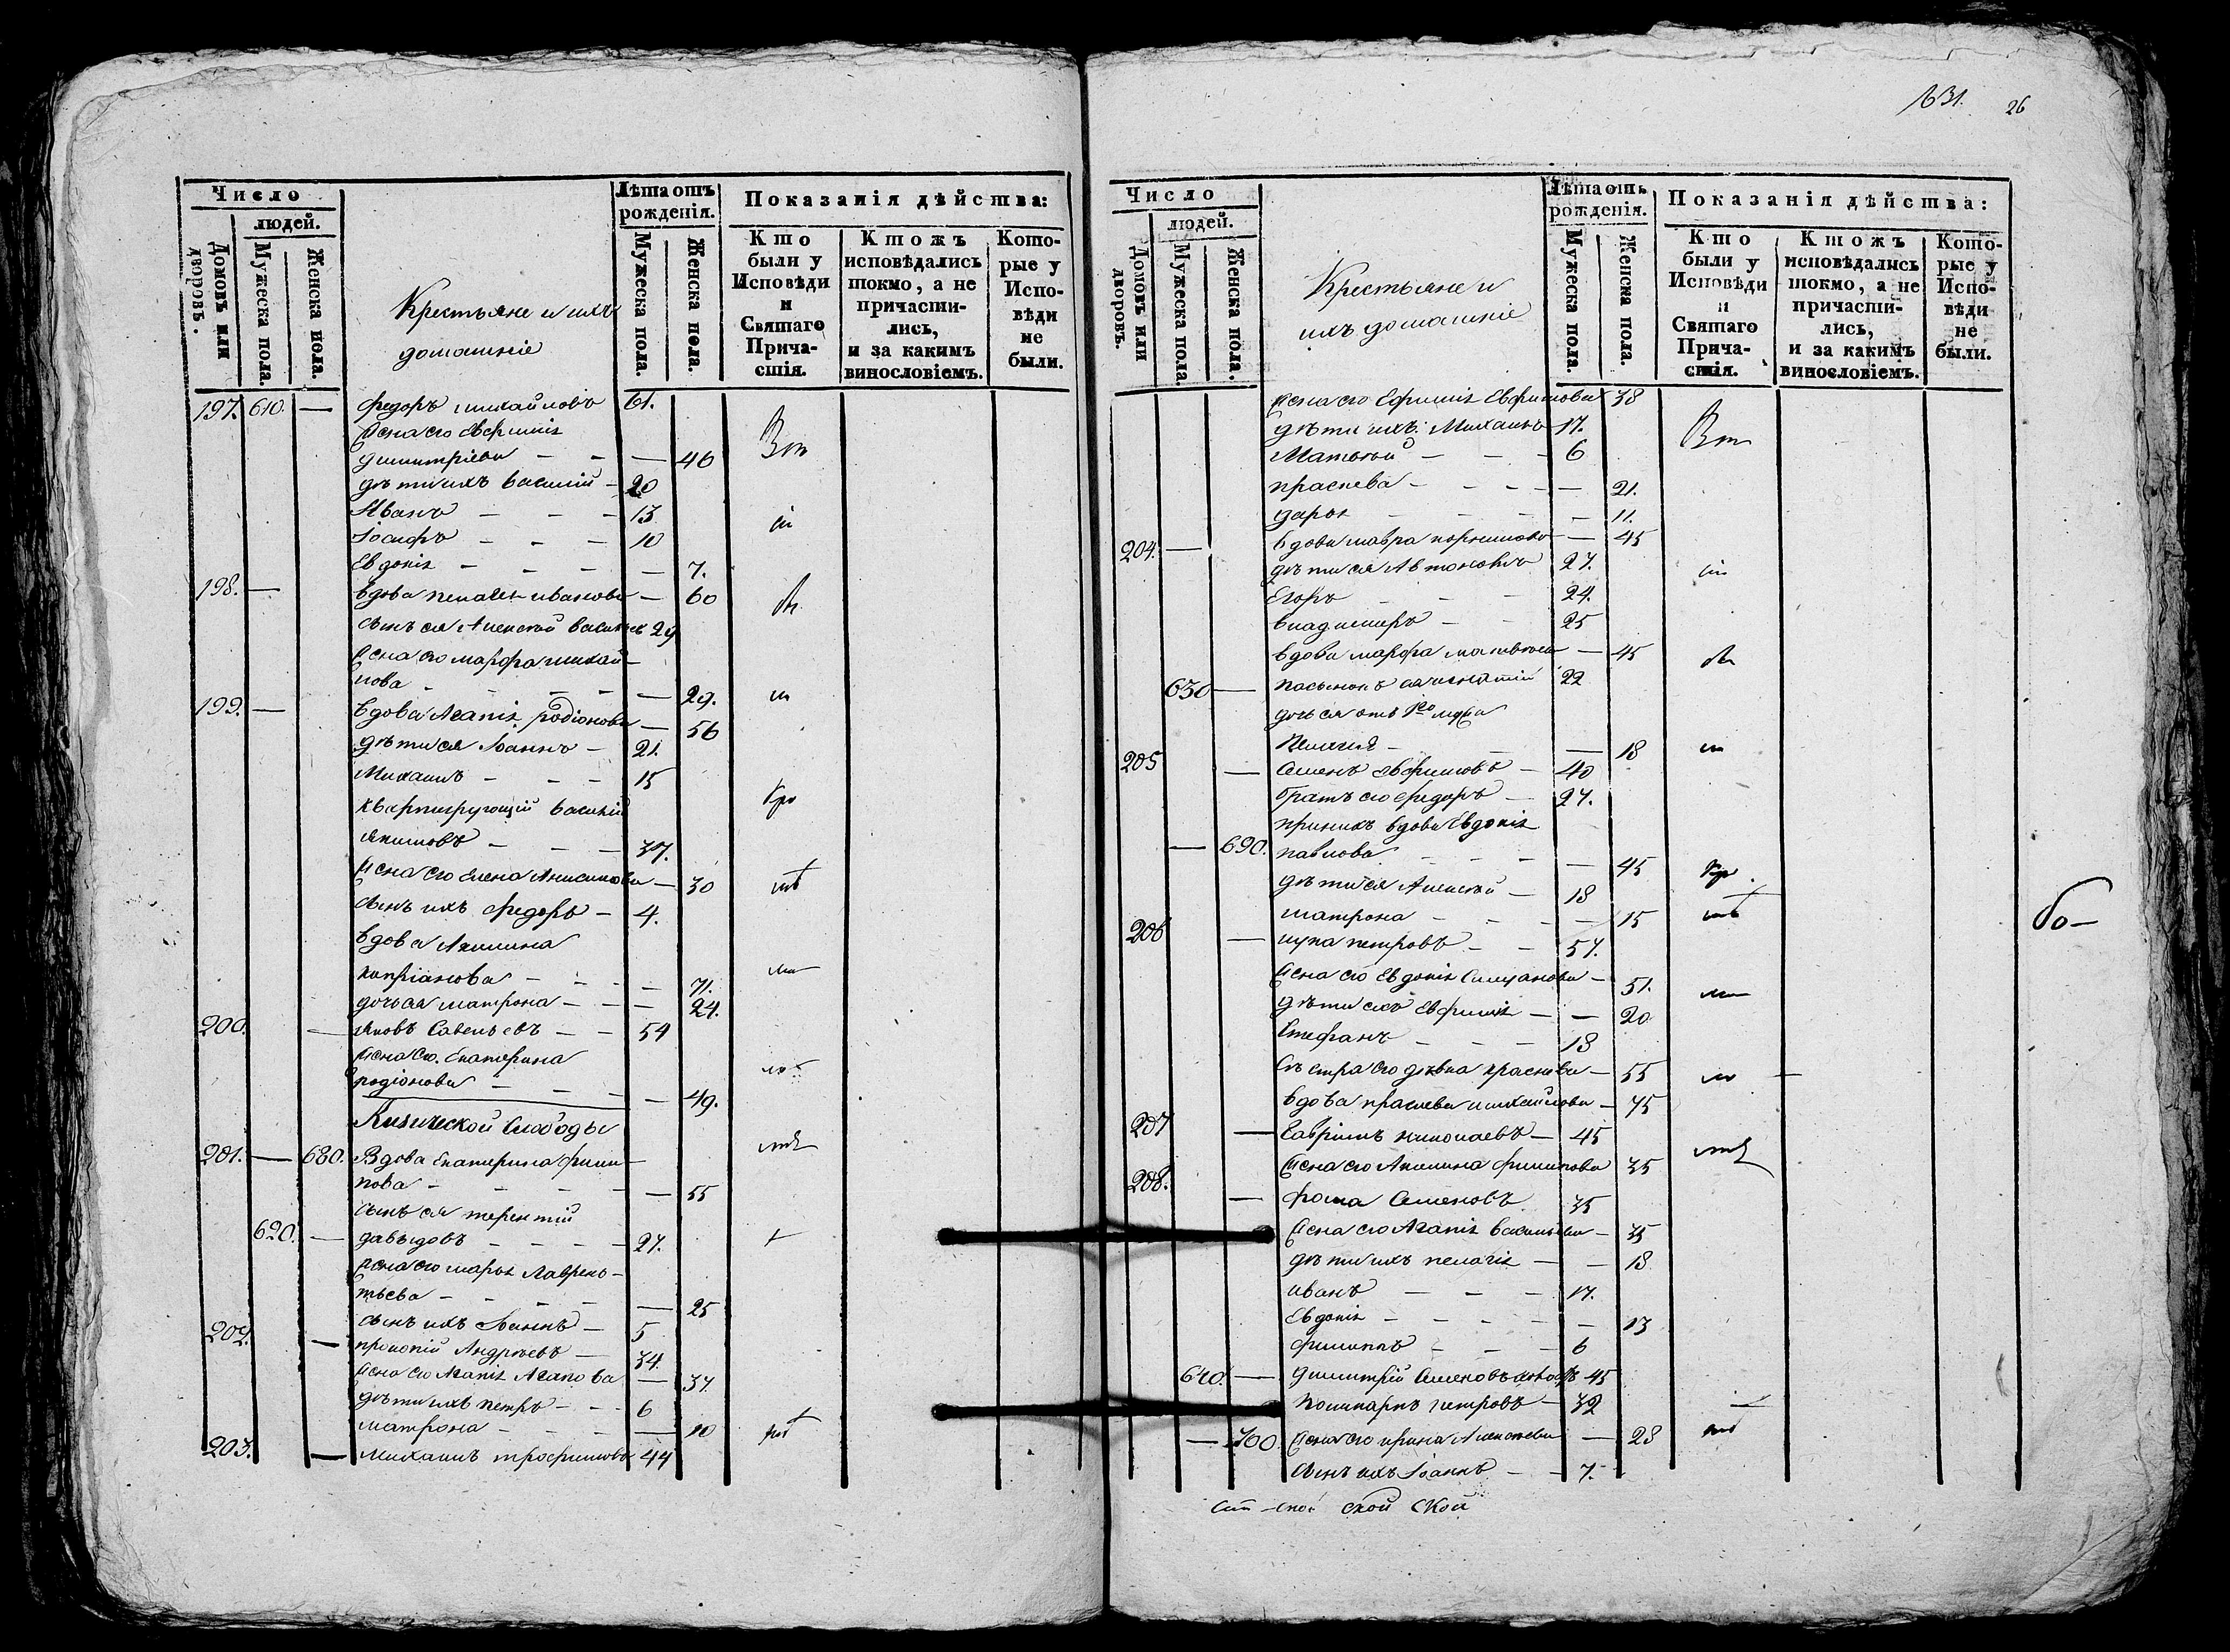 Число
людей.
Домовъ или дворовъ.
Мужеска пола.
Женска пола.
Крестьяне и ихъ
домашніе
Лѣта отъ
рожденія.
Мужеска пола.
Женска пола.
Показанія дѣйства:
Кто были у Исповѣди и Святаго Прича-стія.
Ктожъ исповѣдались токмо, а не причасти-лись, и за какимъ винословіемъ.
Кото-рые у Испо-вѣди не были.
197. 610. — Федоръ Михайловъ 61.
Жена его Евфимія
Димитріева — — — 46
дѣти ихъ Василій — 20
Иванъ — — — 13
Іосифъ — — — 10
Евдокія — — — — 7.
198. — Вдова Пелагея Иванова — 60
сынъ ея Алексей Васильев 29
Жена его Марфа Михай-
лова — — — — — 29.
199. — Вдова Агапія Родіонова — 56
дѣти ея Іоаннъ — 21.
Михаилъ — — — 15
квартирующій Василій
Якимовъ — — — 37.
Жена его Елена Анисимова — 30
сынъ ихъ Федоръ — 4.
Вдова Акилина
Кипріанова — — — — 71.
дочь ея Матрона — — — 24.
200. — Яковъ Савельевъ — — 54
Жена его Екатерина
Родіонова — — — — 49.
Кизической Слободы
201. — 680. Вдова Екатерина Фили-
пова — — — — — 55
сынъ ея Терентій
620. — Давыдовъ — — — — 27.
Жена его Марья Лаврень-
тьева — — — — — 25
сынъ ихъ Іоаннъ — 5
202. — Прокопій Андреевъ — 34.
Жена его Агапія Агапова — 37.
дѣти ихъ Петръ — — 6
Матрона — — — — 10
203. — Михаилъ Трофимовъ 44
1631. 26
Число
людей.
Домовъ или дворовъ.
Мужеска пола.
Женска пола.
Крестьяне и
ихъ домашніе
Лѣта отъ
рожденія.
Мужеска пола.
Женска пола.
Показанія дѣйства:
Кто были у Исповѣди и Святаго Прича-стія.
Ктожъ исповѣдались токмо, а не причасти-лись, и за какимъ винословіемъ.
Кото-рые у Испо-вѣди не были.
Жена его Ефимія Евфимова 38
дѣти ихъ: Михаилъ 17.
Матвей — — — 6
Праскева — — — — 21.
Дарья — — — — 11.
204. — Вдова Мавра — 45
дѣти ея Автономъ 27.
Егоръ — — — 24.
Владимеръ — — 25
Вдова Марфа Матвеева — 45
630 — Пасынокъ ея Игнатій 22
дочь ея отъ 1го мужа
Пелагея — — — 18
205 — Семенъ Евфимовъ — 40
братъ его Федоръ — 27.
при нихъ вдова Евдокія
— 690. Павлова — — — — 45
дѣти ея Алексей — 18
Матрона — — — — 15
206 — Лука Петровъ — — 57.
Жена его Евдокія Степанова — 51.
дѣти ихъ Евфимія — — 20
Стефанъ — — — 18
Сестра его девка Праскева — 55
Вдова Праскева Михайлова — 75
207 — Гаврилъ Николаевъ — 45
Жена его Акилина Филипова 35
208. — Фома Семеновъ 35
Жена его Агапія Васильева — 35
дѣти ихъ Пелагія — — 18
Иванъ — — — 17.
Евдокія — — — — — 13
Филиппъ — — — 6
640. — Димитрій Семеновъ 45
Поликарпъ Петровъ — 32
— 700. Жена его Ирина Алексеева — 28
сынъ ихъ Іоаннъ — — 7.
ской ской